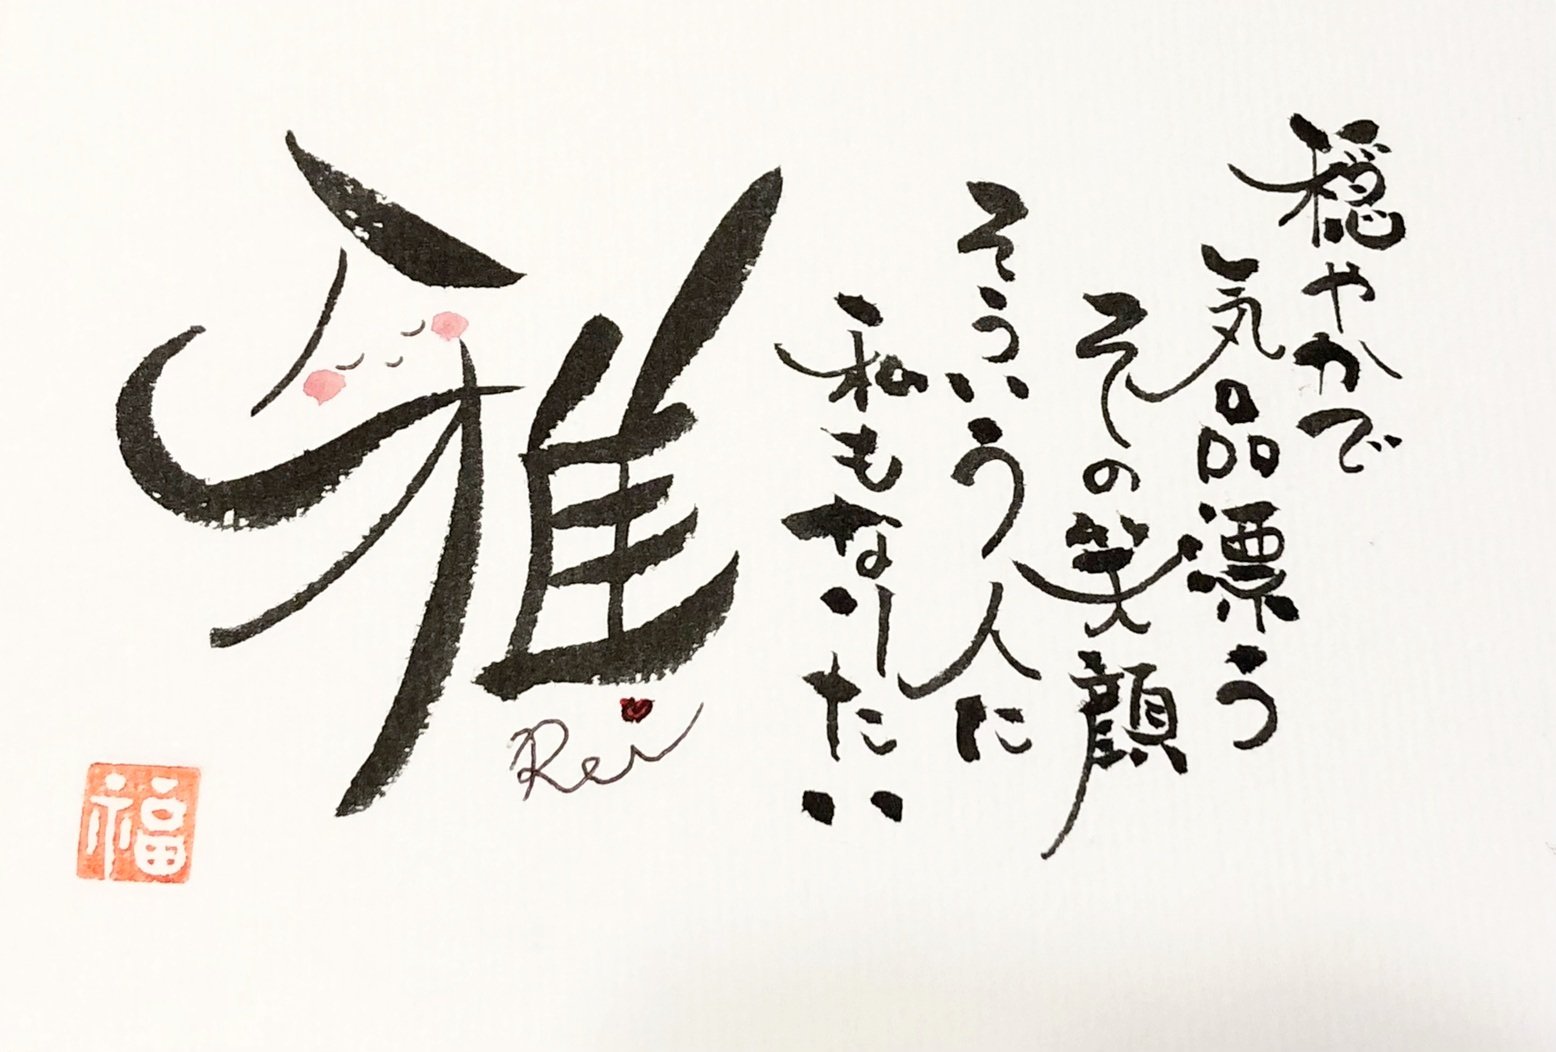 穏やかで
気品漂う
その笑顔
そういう人に
私もなりたい
雅
Rei
福